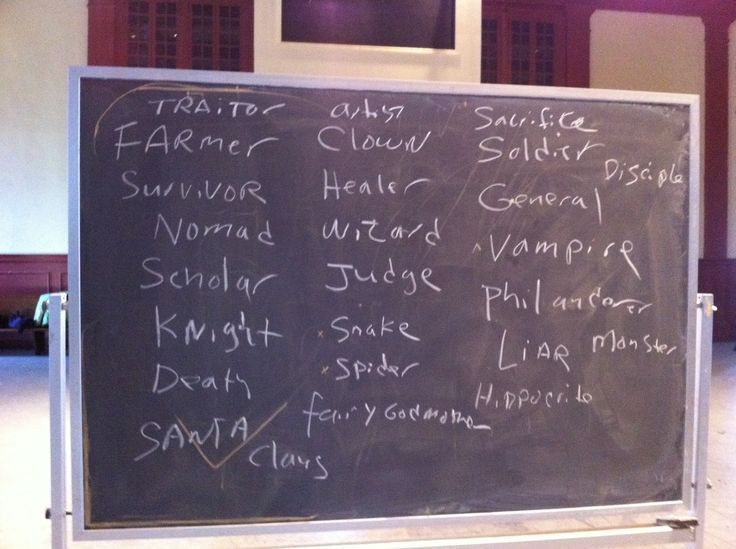 TRAITOR
FARmer
SURVIVOR
Nomad
Scholar
Knight
Death
SANTA
Claus
artist
Clown
Healer
Wizard
Judge
x Snake
x Spider
fairy Godmother
Sacrifice
Soldier
Disciple
General
Vampire
Philanderer
LIAR
Monster
Hippocrite